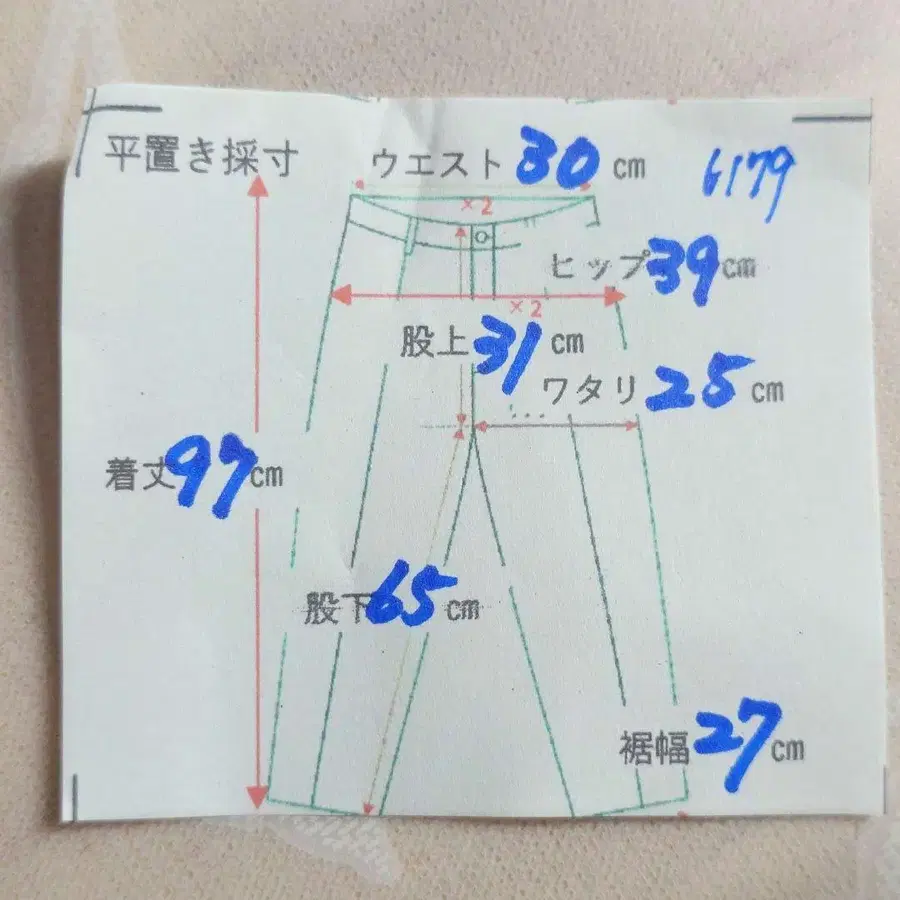 平置き採寸 ウエスト 30 cm 6179
×2
ヒップ 39 cm
×2
股上 31 cm
ワタリ 25 cm
着丈 97 cm
股下 65 cm
裾幅 27 cm